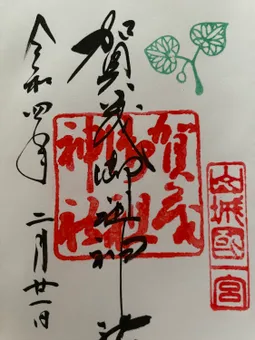 山城國一宮
賀茂
御祖
神社
賀茂御祖神社
令和四年 二月廿一日